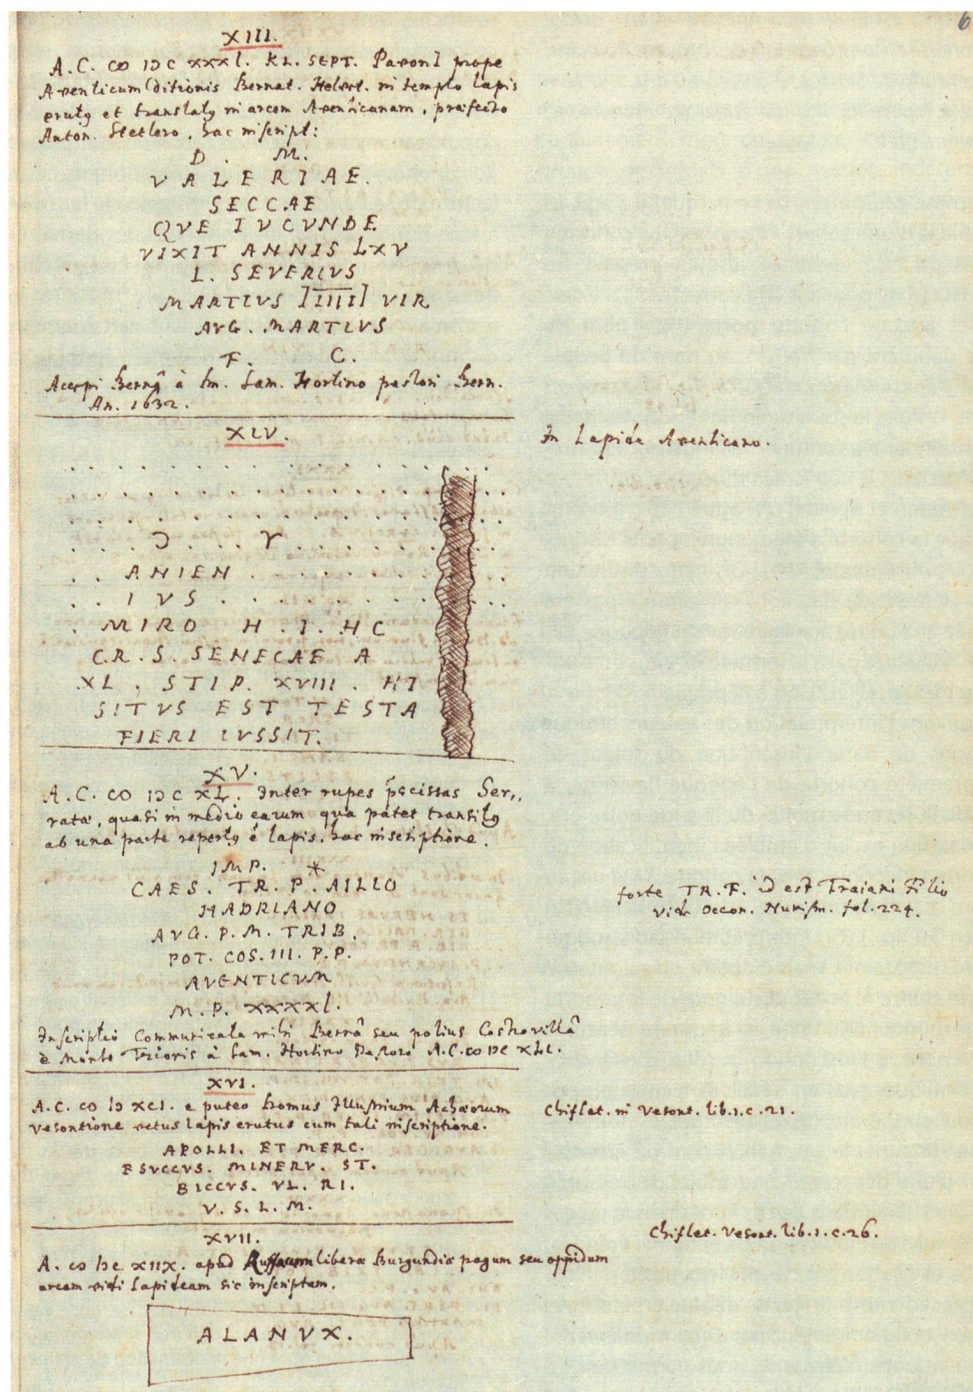 6
XIII.
A.C. CIƆ IƆC XXXI. KL. SEPT. prope
Aventicum Ditionis Bernat. Helvet. in templo lapis
erutꝰ et translatꝰ in arcem Aventicanam, praefecto
Anton. Stetlero, hac inscript:
D. M.
VALERIAE.
SECCAE
QVE IVCVNDE
VIXIT ANNIS LXV
L. SEVERIVS
MARTIVS IIIIII VIR
AVG. MARTIVS
F. C.
Accepi Bernâ à Sam. Hortino pastori Bern.
An. 1632.
XIV. In Lapide Aventicano.
Ɔ . . . V
ANIEN
IVS
MIRO H . I . HC
C.R.S. SENECAE A
XL . STIP. XVIII . HI
SITVS EST TESTA
FIERI IVSSIT.
XV.
A.C. CIƆ IƆC XL. Inter rupes Ser,,
rata, quasi in medio earum qua patet transitꝰ
ab una parte repertꝰ ē lapis, hac inscriptione.
IMP. *
CAES. TR. P. AILLO
HADRIANO
AVG. P.M. TRIB.
POT. COS. III. P.P.
AVENTICVM
M.P. XXXXI.
forte TR.F. id est Traiani Filio
vid. Occon. Numism. fol. 224.
Inscriptio communicata mihi Bernâ seu potius
è à Sam. Hortino A.C. CIƆ IƆC XLI.
XVI.
A.C. CIƆ IƆ XCI. e puteo Domus Illustrium
Vesontione vetus lapis erutus cum tali inscriptione.
Chiflet. in Vesont. lib. 1. c. 21.
APOLLI. ET MERC.
ESVCCVS. MINERV. ST.
BICCVS. VL. RI.
V. S. L. M.
XVII. Chiflet. Vesont. lib. 1. c. 26.
A. CIƆ IƆC XIIX. apud liberae Burgundiae pagum seu oppidum
arcam vidi lapideam sic inscriptam.
ALANVX.